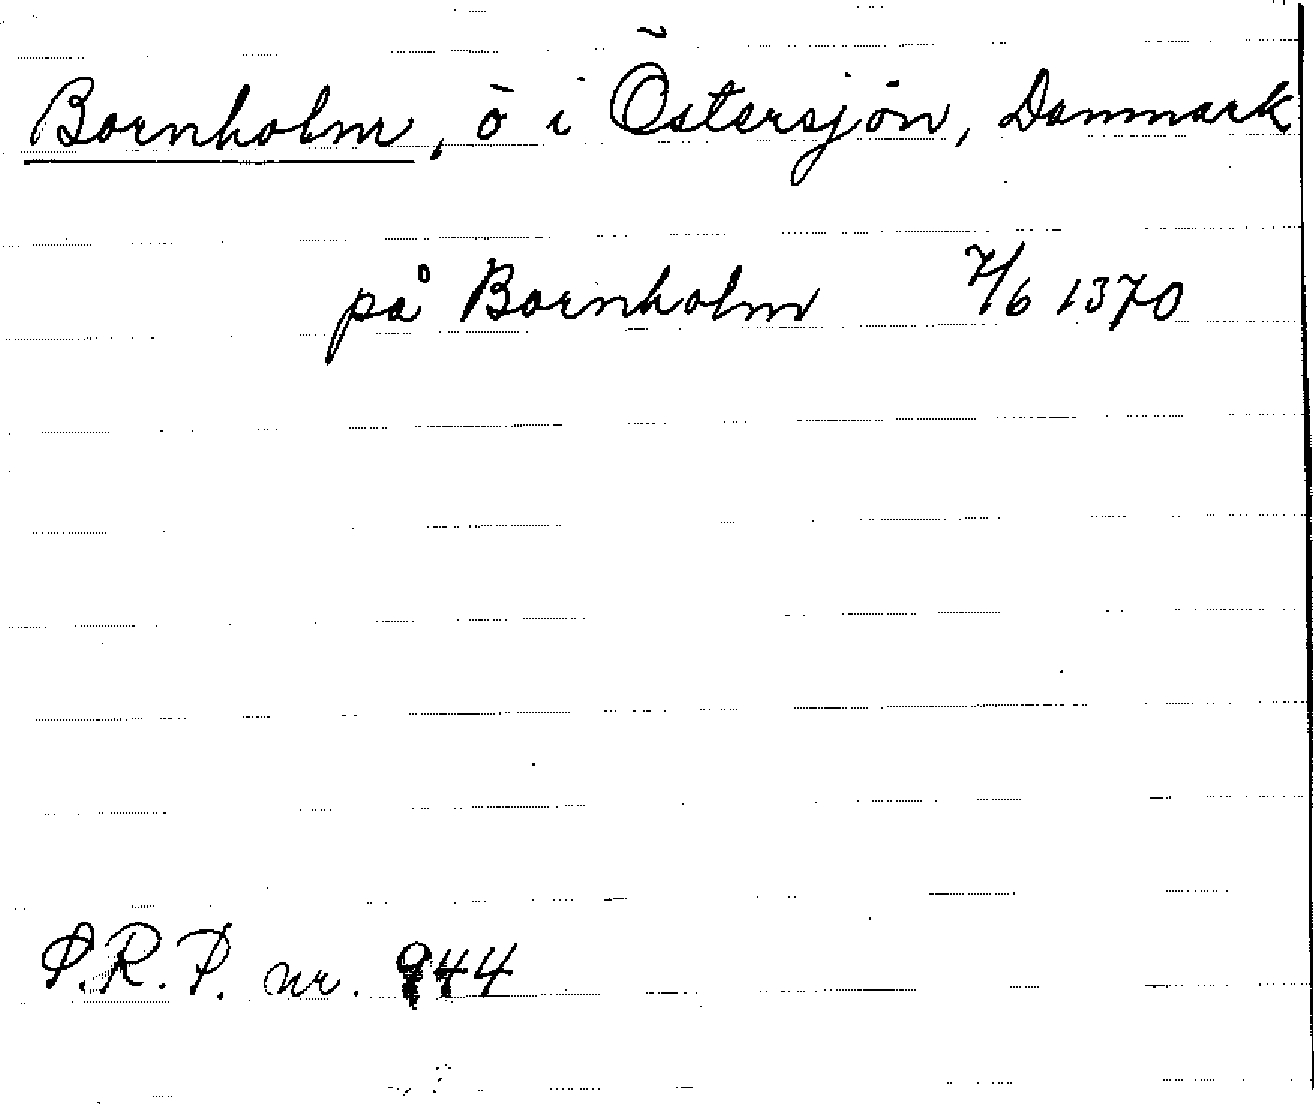 Bornholm, ö i Östersjön, Danmark
på Bornholm 7/6 1370
S.R.P. nr. 944